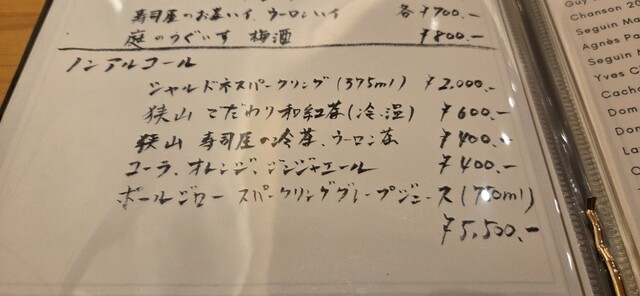 寿司屋のお茶いす、ウーロンハイ 各¥700.-
庭のうぐいす 梅酒 ¥800.-
ノンアルコール
シャルドネスパークリング(375ml) ¥2.000.-
狭山 こだわり和紅茶(冷、温) ¥600.-
狭山 寿司屋の冷茶、ウーロン茶 ¥400.-
コーラ、オレンジ、ジンジャエール ¥400.-
ポールジロー スパークリンググレープジュース(750ml)
¥5,500.-
Guy
Chanson 20
Seguin Ma
Agnès Pa
Seguin M
Yves C
Cacho
Dom
Do
La